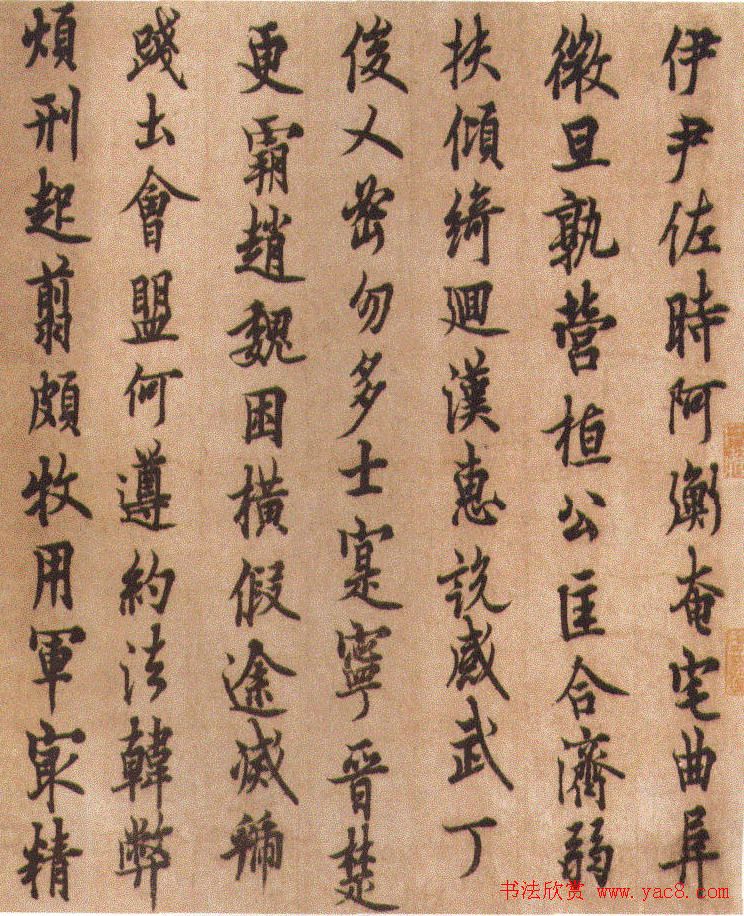 伊尹佐時阿衡奄宅曲阜
微旦孰營桓公匡合濟弱
扶傾綺迴漢惠說感武丁
俊乂密勿多士寔寧晉楚
更霸趙魏困橫假途滅虢
踐土會盟何遵約法韓弊
煩刑起翦頗牧用軍最精
书法欣赏 www.yac8.com